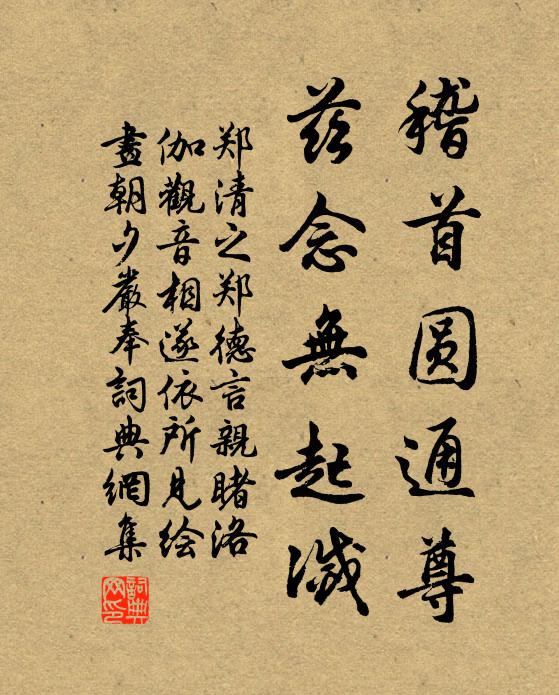 稽首圆通尊
兹念無起滅
郑清之郑德言親睹洛
伽觀音相遂依所見绘
畫朝夕嚴奉詞典網集
詞典
网印